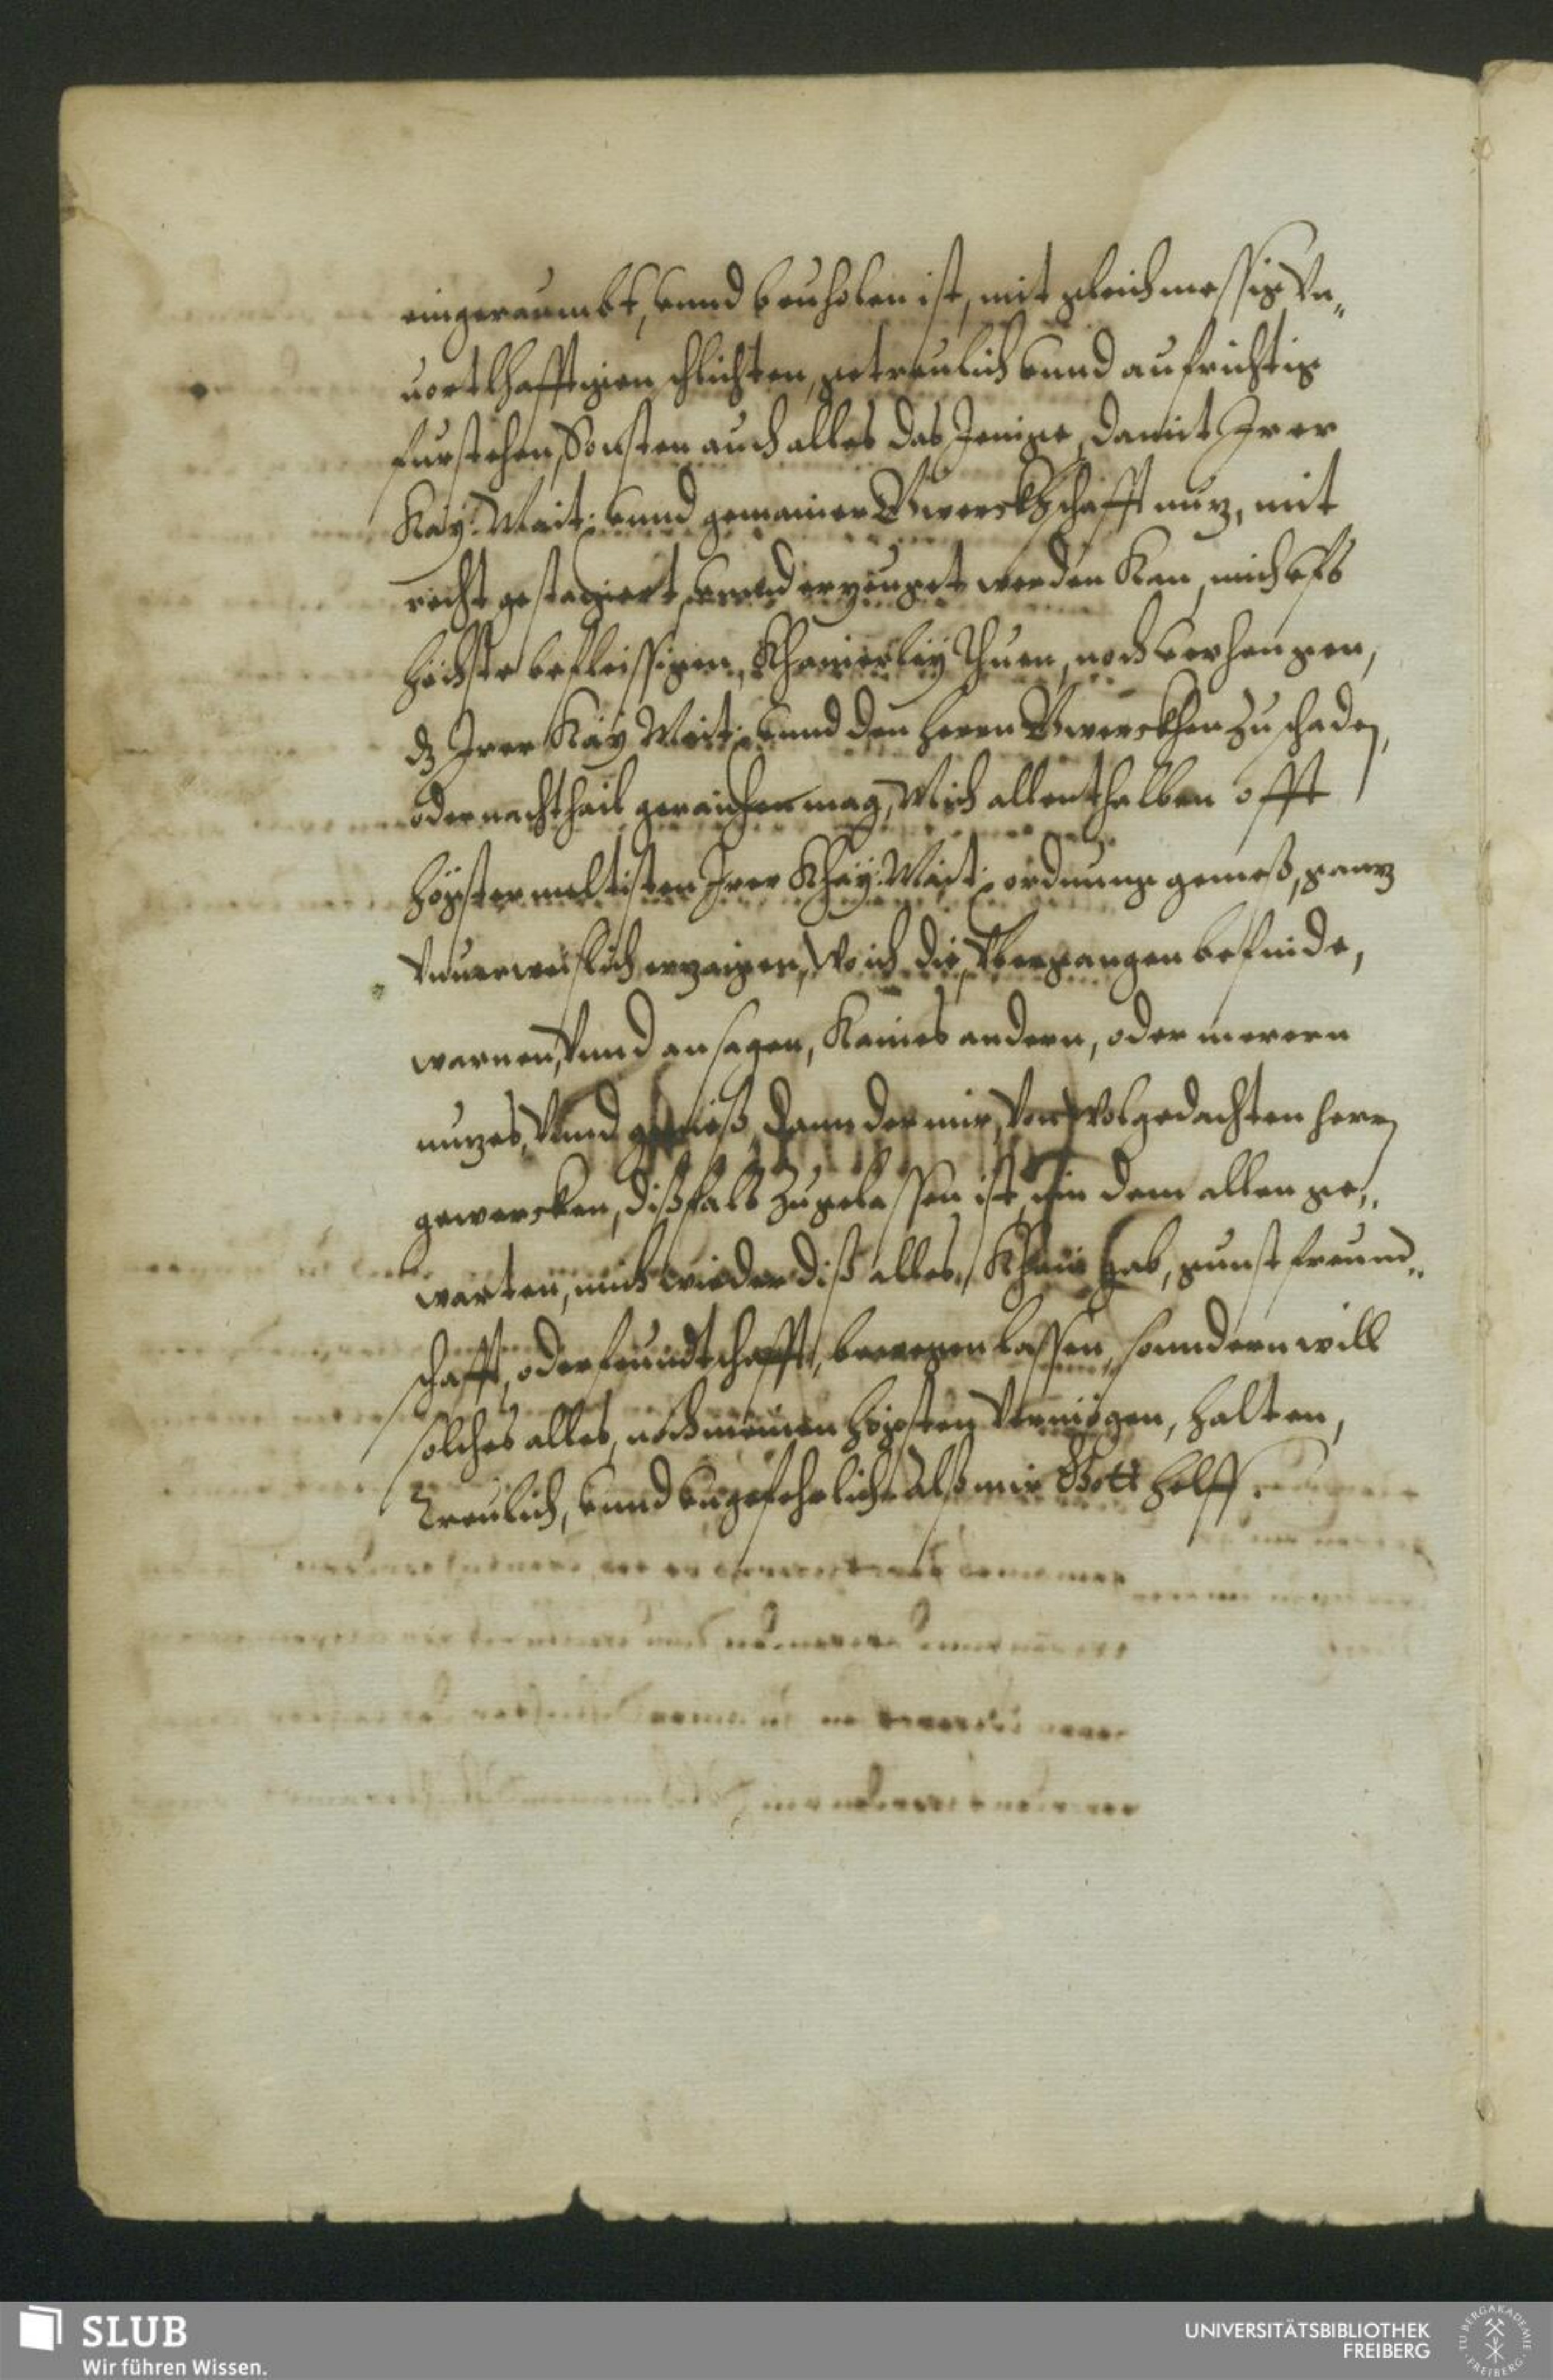 eingeraumbt, vnnd beuholen ist, mit gleichmessig Vn„
uortlhafftigen schlichten, getreulich vnnd aufrichtig
furstehen, Sonsten auch alles das Jenige, damit Irer
Kay: Mait: vnnd gemainer Gwerckhschafft nuz, mit
recht gestagiert, vnnd erzeuget werden kan, mich aufs
höchste befleissigen, Khainerley Thuen, noch verhengen,
dz Irer Kay Mait: vnnd den herrn Gwerckhen zu schaden,
oder nachthail geraichen mag, Mich allenthalben offt
höchstermeltisten Irer Khay: Mait: ordnung gemeß, ganz
Vnuerweislich erzaigen, Wo ich die Vbergangen befinde,
warnen, Vnnd ansagen, Kaines andern, oder merern
nuzes, Vnnd genieß, dann der mir, Von Wolgedachten herrn
gewercken, dißfals zugelassen ist, in dem allen ge„
warten, mich wieder diß alles, Khain gab, gunst freund„
schafft, oder feundtschafft, bewegen lassen, sonndern will
solches alles, nach meinen högsten Vermögen, halten,
Treulich, vnnd vngefehrlich Alß mir Gott helff.
SLUB
Wir führen Wissen.
UNIVERSITÄTSBIBLIOTHEK
FREIBERG
TU BERGAKADEMIE
FREIBERG